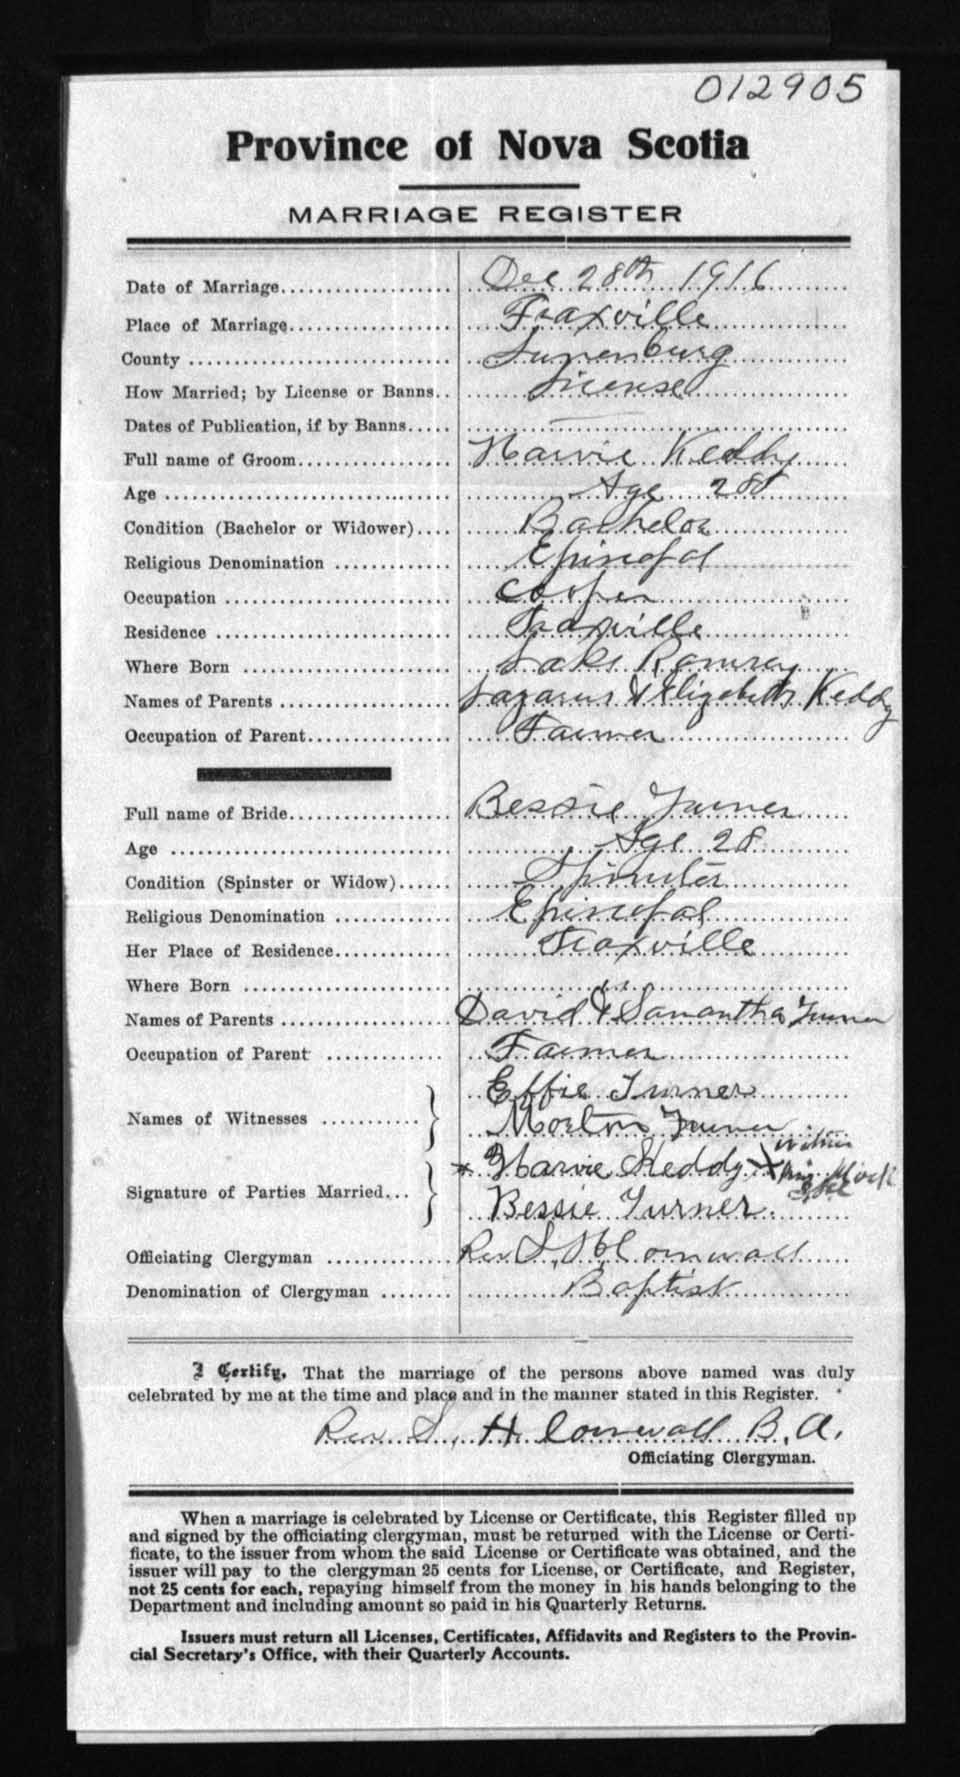 012905
Province of Nova Scotia
MARRIAGE REGISTER
Date of Marriage Dec 28th 1916
Place of Marriage Fraxville
County Lunenburg
How Married; by License or Banns License
Dates of Publication, if by Banns
Full name of Groom Harvie Keddy
Age Age 28
Condition (Bachelor or Widower) Bachelor
Religious Denomination Episcopal
Occupation Cooper
Residence Fraxville
Where Born Lake Ramsay
Names of Parents Lazarus & Elizabeth Keddy
Occupation of Parent Farmer
Full name of Bride Bessie Turner
Age Age 28
Condition (Spinster or Widow) Spinster
Religious Denomination Episcopal
Her Place of Residence Fraxville
Where Born " "
Names of Parents David & Samantha Turner
Occupation of Parent Farmer
Effie Turner
Names of Witnesses
Morton Turner
* Harvie Keddy X his Mark
Signature of Parties Married
Bessie Turner.
Officiating Clergyman Rev S. H. Cornwall
Denomination of Clergyman Baptist
I Certify, That the marriage of the persons above named was duly
celebrated by me at the time and place and in the manner stated in this Register.
Rev S. H. Cornwall B. A.
Officiating Clergyman.
When a marriage is celebrated by License or Certificate, this Register filled up
and signed by the officiating clergyman, must be returned with the License or Certi-
ficate, to the issuer from whom the said License or Certificate was obtained, and the
issuer will pay to the clergyman 25 cents for License, or Certificate, and Register,
not 25 cents for each, repaying himself from the money in his hands belonging to the
Department and including amount so paid in his Quarterly Returns.
Issuers must return all Licenses, Certificates, Affidavits and Registers to the Provin-
cial Secretary's Office, with their Quarterly Accounts.